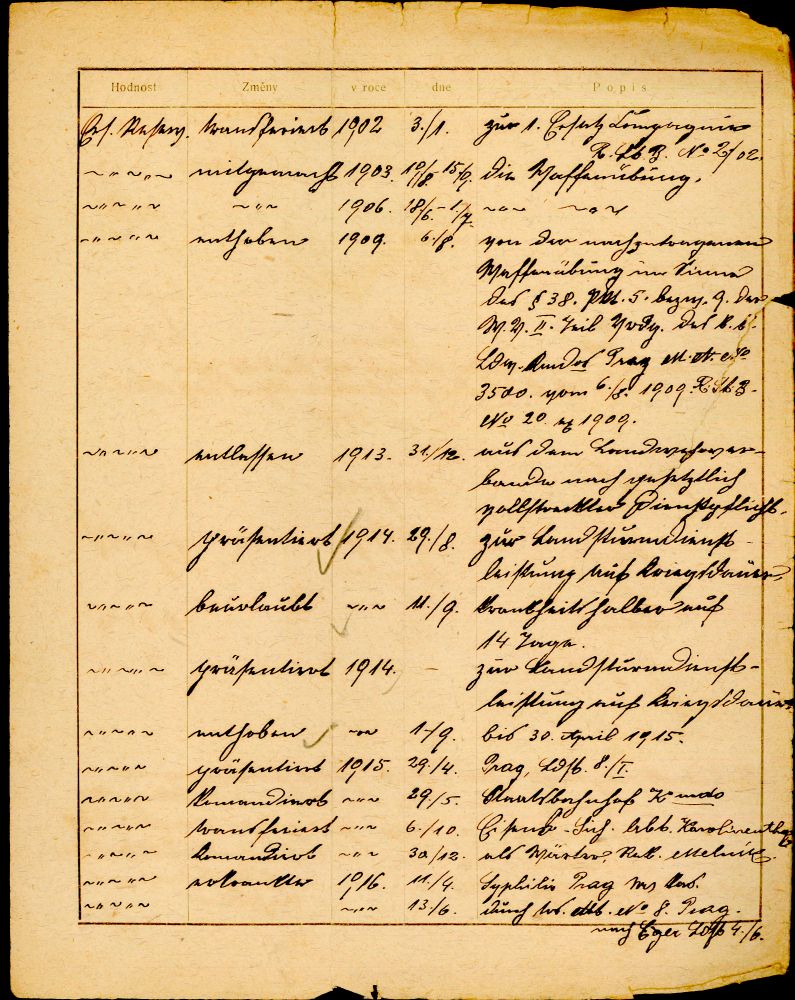 Hodnost Změny v roce dne Popis
Ers. Reserv. transferiert 1902 3./1. zur 1. Ersatz Compagnie
R. Stb. B. No 2/02.
~"~"~ mitgemacht 1903. 19/8.-15/9. die Waffenübung.
~"~"~ ~"~ 1906. 18/6.-1/7. ~"~ ~"~
~"~"~ enthoben 1909. 6./8. von der nachzutragenen
Waffenübung im Sinne
des § 38. Pkt. 5. bezw. 9. der
W. V. II. Teil Vdg. des k. k.
Ldw. Kmdos Prag M. A. No
3500. vom 6./8. 1909. R. Stb. B.
No 20 ex 1909.
~"~"~ entlassen 1913. 31./12. aus dem Landwehrver-
bande nach gesetzlich
vollstreckter Dienstpflicht.
~"~"~ präsentiert 1914. 29./8. zur Landsturmdienst-
leistung auf Kriegsdauer.
~"~"~ beurlaubt ~"~ 11./9. krankheitshalber auf
14 Tage.
~"~"~ präsentiert 1914. – zur Landsturmdienst-
leistung auf Kriegsdauer.
~"~"~ enthoben ~"~ 1./9. bis 30. April 1915.
~"~"~ präsentiert 1915. 29./4. Prag, Ldst. 8./I.
~"~"~ Komandiert ~"~ 29./5. Staatsbahnhof Kmdo
~"~"~ transferiert ~"~ 6./10. Eisenb.-Sich. Abt. Karolinenthal
~"~"~ Komandiert ~"~ 30/12. als Wärter, Melnik.
~"~"~ erkrankte 1916. 11./4. Syphilis Prag
~"~"~ ~"~ 13./6. durch No 8. Prag.
nach Eger Ldst 4./6.